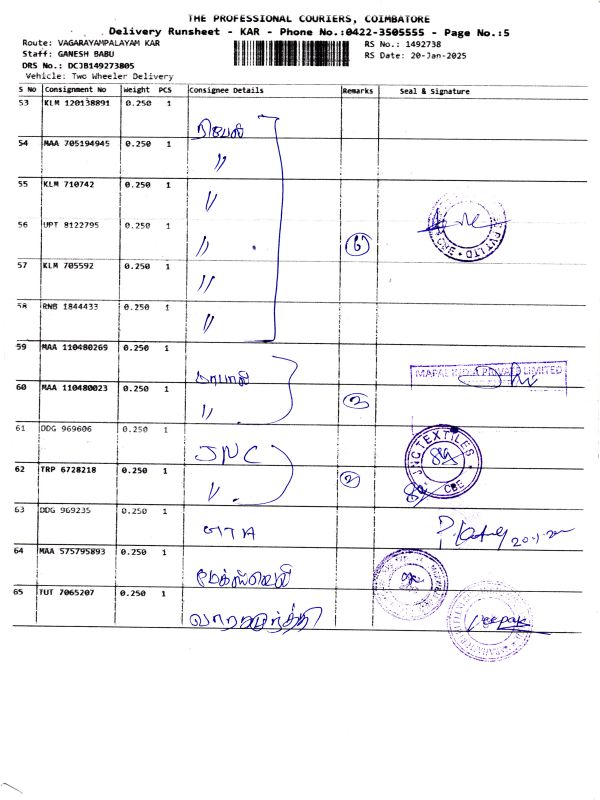 THE PROFESSIONAL COURIERS, COIMBATORE
Delivery Runsheet - KAR - Phone No.:0422-3505555 - Page No.:5
Route: VAGARAYAMPALAYAM KAR
RS No.: 1492738
Staff: GANESH BABU
RS Date: 20-Jan-2025
DRS No.: DCJB149273805
Vehicle: Two Wheeler Delivery
S No Consignment No Weight PCS Consignee Details Remarks Seal & Signature
53 KLM 120138891 0.250 1
54 MAA 705194945 0.250 1 "
55 KLM 710742 0.250 1 "
56 UPT 8122795 0.250 1 " 6
57 KLM 705592 0.250 1 "
58 RNB 1844433 0.250 1 "
59 MAA 110480269 0.250 1 மாபால் MAPAL INDIA PRIVATE LIMITED
60 MAA 110480023 0.250 1 " 2
61 DDG 969606 0.250 1 JNC JNC TEXTILES CBE
62 TRP 6728218 0.250 1 " 2
63 DDG 969235 0.250 1 20-1-25
64 MAA 575795893 0.250 1
65 TUT 7065207 0.250 1 Deepak